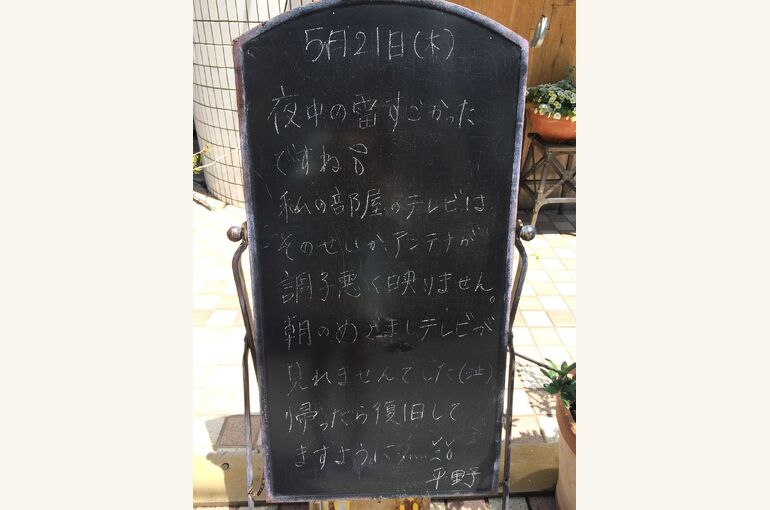 5月21日(木)
夜中の雷すごかった
ですね
私の部屋のテレビは
そのせいか、アンテナが
調子悪く映りません。
朝のめざましテレビが
見れませんでした(泣)
帰ったら復旧して
ますように……
平野